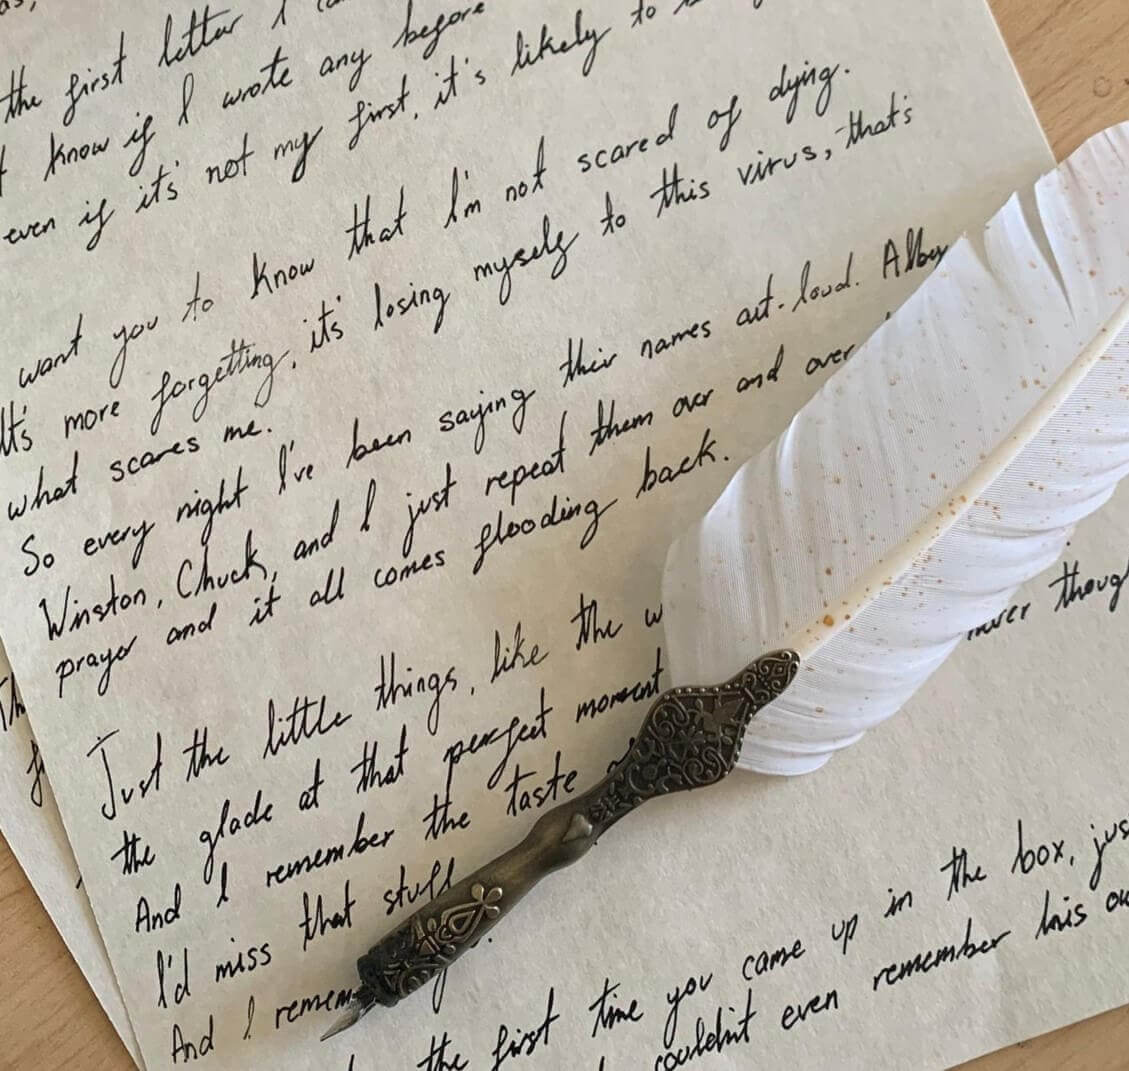 the first letter I
know if I wrote any before
even if it's not my first, it's likely to
want you to know that I'm not scared of dying.
It's more forgetting, it's losing myself to this virus, that's
what scares me.
So every night I've been saying their names out-loud. Alby
Winston, Chuck, and I just repeat them over and over
prayer and it all comes flooding back.
Just the little things, like the
the glade at that perfect moment
never
And I remember the taste
I'd miss that stuff
And I
the first time you came up in the box, jus
couldn't even remember his ow